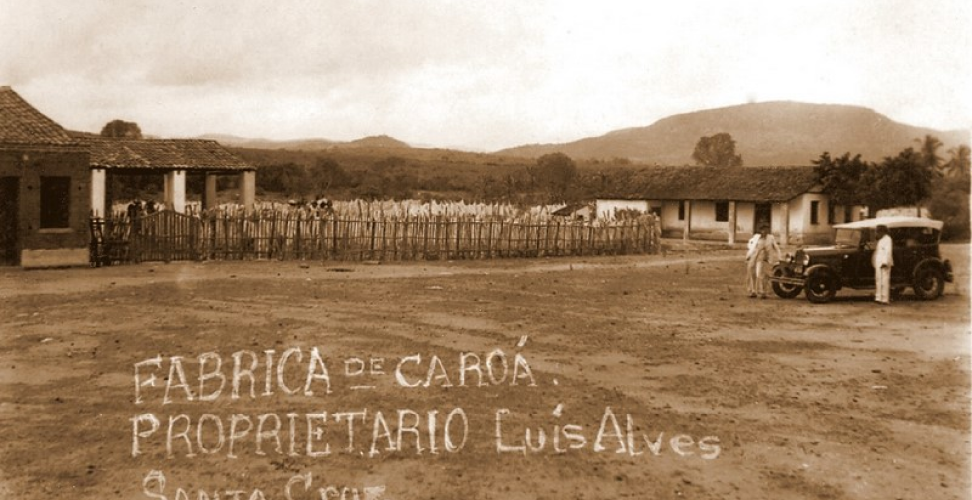 FABRICA DE CAROÁ.
PROPRIETARIO Luís Alves
SANTA CRUZ